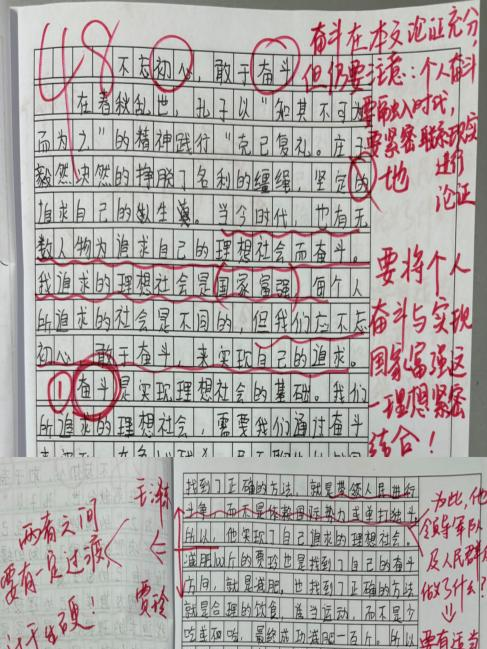 48
不忘初心，敢于奋斗
在春秋乱世，孔子以“知其不可为
而为之”的精神践行“克己复礼。庄子
毅然决然的挣脱了名利的缰绳，坚定的
追求自己的
当今时代，也有无
数人物为追求自己的理想社会而奋斗。
我追求的理想社会是国家富强，每个人
所追求的社会是不同的，但我们应不忘
初心，敢于奋斗，来实现自己的追求。
①奋斗是实现理想社会的基础。我们
所追求的理想社会，需要我们通过奋斗
奋斗在本文论证充分，
但仍要注意：个人奋斗
要融入时代，
要紧密联系
进行
论证
地
要将个人
奋斗与实现
国家富强这
一理想紧密
结合！
两者之间
要有一定过渡
生硬！
毛
贾玲
找到了正确的方法，就是带领人民进行
斗争，而不是依赖国际势力或单打独斗
所以，他实现了自己追求的理想社会。
减肥百斤的贾玲也是找到了自己的奋斗
方向，就是减肥，也找到了正确的方法
就是合理的饮食，适当运动，而不是少
吃或不吃，最终成功减肥一百斤。所以
为此，他
领导军队
及人民群众
做了什么？
要有适当